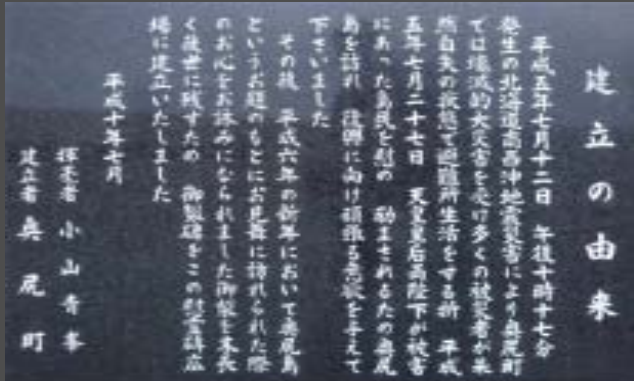 建立の由来
平成五年七月十二日 午後十時十七分
発生の北海道南西沖地震災害により奥尻町
では壊滅的大災害を受け多くの被災者が茫
然自失の状態で避難所生活をする折 平成
五年七月二十七日 天皇皇后両陛下が被害
にあった島民を慰め 励まされるため奥尻
島を訪れ 復興に向け頑張る意欲を与えて
下さいました
その後 平成六年の新年において奥尻島
というお題のもとにお見舞に訪れられた際
のお心をお詠みになられました御製を末長
く後世に残すため 御製碑をこの慰霊碑広
場に建立いたしました
平成十年七月
揮毫者 小山青峯
建立者 奥尻町